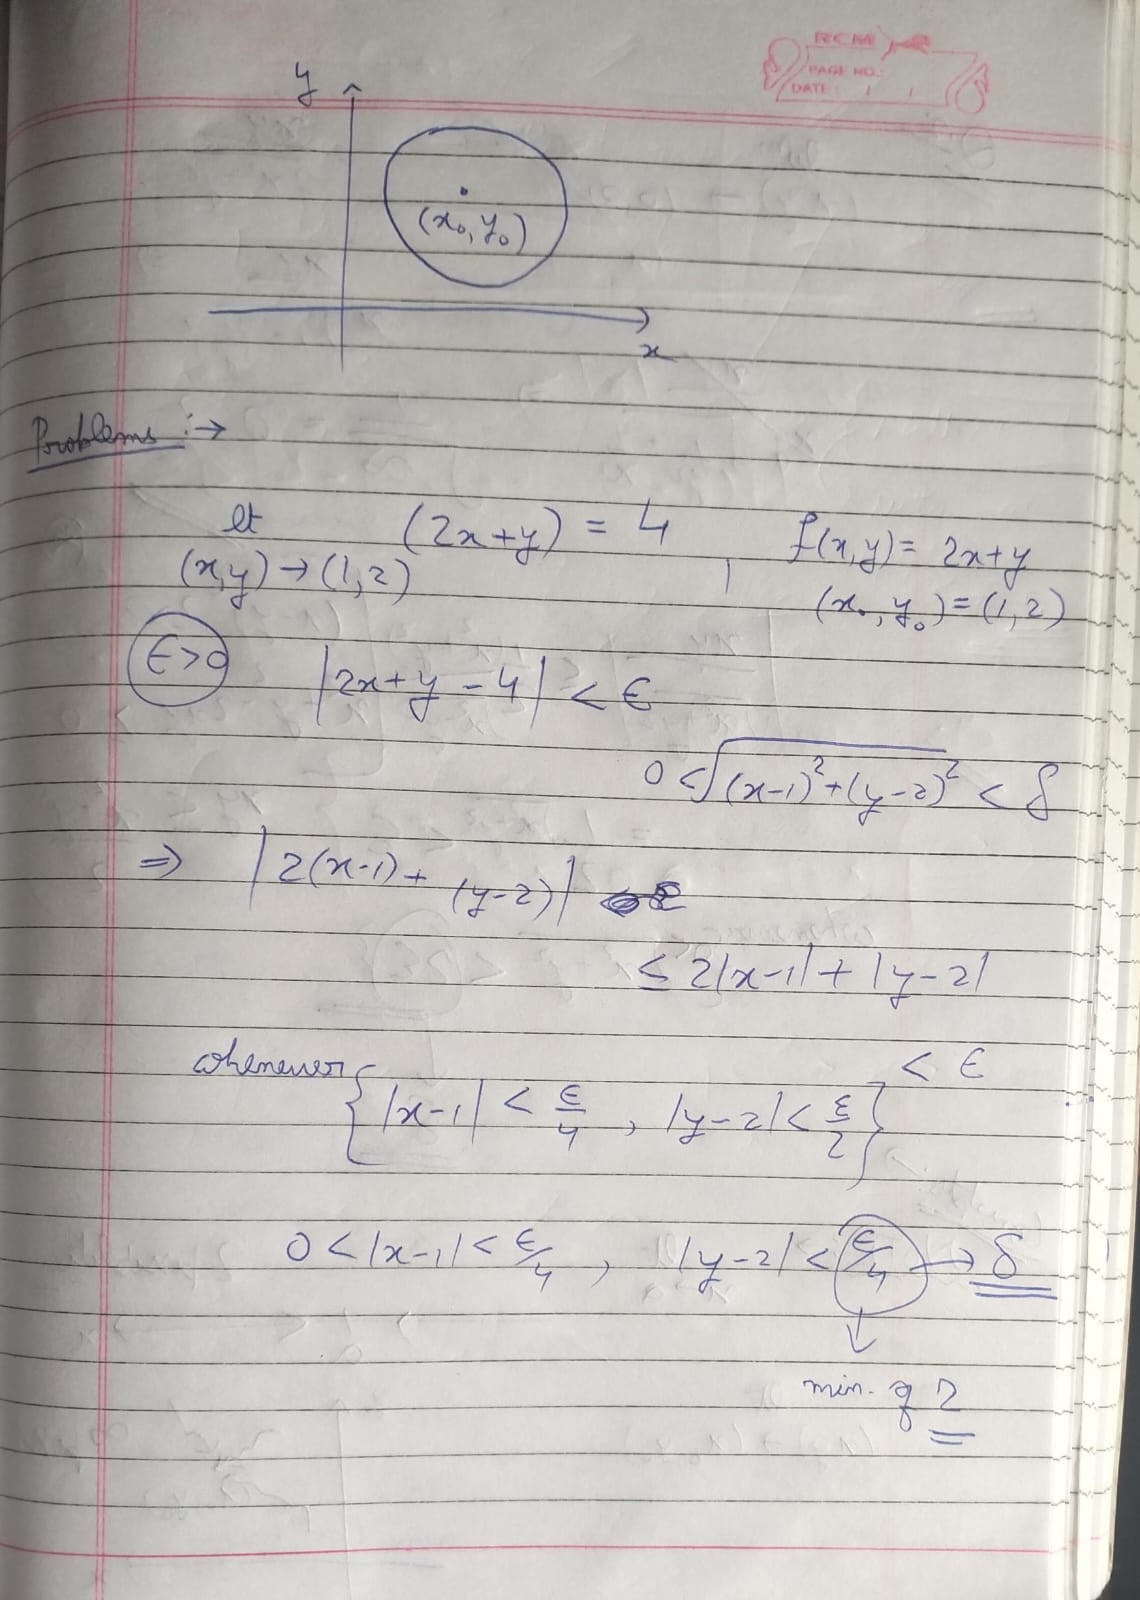 RCM
PAGE NO.:
DATE: / /
y
(x₀, y₀)
x
Problems :→
lt (2x+y) = 4 | f(x,y) = 2x+y
(x,y)→(1,2) (x₀, y₀) = (1,2)
ϵ>0 |2x+y-4| < ϵ
0 < √((x-1)²+(y-2)²) < δ
⇒ |2(x-1)+(y-2)|
≤ 2|x-1| + |y-2|
< ϵ
whenever { |x-1| < ε/4 , |y-2| < ε/2 }
0 < |x-1| < ϵ/4 , |y-2| < ϵ/4 → δ
↓
min. of 2